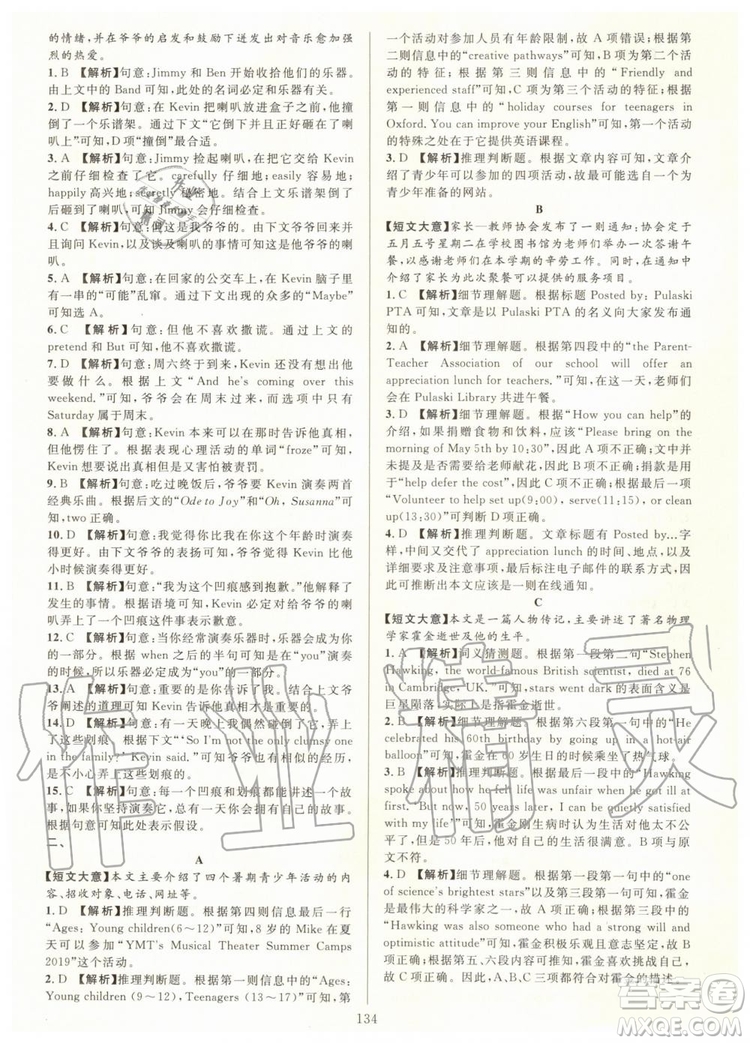 的情绪,并在爷爷的启发和鼓励下迸发出对音乐愈加强
烈的热爱。
1. B 【解析】句意:Jimmy 和 Ben 开始收拾他们的乐器。
由上文中的 Band 可知,此处的名词必定和乐器有关。
2. D 【解析】句意:在 Kevin 将喇叭放进盒子之前,他撞
倒了一个乐谱架。通过下文“它倒下并正好砸到了喇
叭上”可知,D 项“撞倒”正确。
3. A 【解析】句意:Jimmy 捡起喇叭,将它交给 Kevin
之前仔细检查了它。carefully 仔细地;easily 容易地;
happily 高兴地;secretly 秘密地。结合上文乐谱架倒了
后砸到了喇叭,可知 Jimmy 会仔细检查。
4. C 【解析】句意:这是我爷爷的。根据下文爷爷到来并
且询问 Kevin,以及谈及喇叭的事情可知这是爷爷的喇
叭。
5. A 【解析】句意:在回家的公交车上,在 Kevin 脑子里
有一串的“可能”乱窜。通过下文出现的众多的“Maybe”
可知选 A。
6. C 【解析】句意:但他不喜欢撒谎。由上文的
pretend 和 But 可知,Kevin 不喜欢撒谎。
7. D 【解析】句意:周六终于到来了,Kevin 仍不知道他
要做什么。根据上文“And he's coming over this
weekend.”可知,爷爷会在周末过来,而选项中只有
Saturday 属于周末。
8. A 【解析】句意:Kevin 本来可以在那时告诉他真相,
但他愣住了。根据表现心理活动的单词“froze”可知,
Kevin 因为害怕而没有说出真相。
9. B 【解析】句意:吃过晚饭后,爷爷要 Kevin 演奏两首
经典乐曲。根据后文的“Ode to Joy”和“Oh, Susanna”可
知,two 正确。
10. D 【解析】句意:我觉得你比我在你这个年龄时演奏
得更好。由下文爷爷的表扬可知,Kevin 比他小时候演奏
得更好。
11. B 【解析】句意:“我为这个凹痕感到抱歉。”他解释了
发生的事情。根据语境可知,Kevin 必定会对给爷爷的喇
叭弄上了一个凹痕这件事情表示歉意。
12. C 【解析】句意:当你经常演奏乐器时,乐器会成为你
的一部分。根据 when 这个词的后半句可知“you”演奏
的乐器,自然会成为“you”的一部分。
13. A 【解析】句意:重要的是你告诉了我。根据上文爷
爷阐述的道理可知重要的是 Kevin 告诉了他真相。
14. D 【解析】句意:有一天晚上我偶然碰倒了它,弄上
了这些划痕。根据下文“‘So I'm not the only clumsy one
in the family.’ Kevin said.”可知,爷爷也有相似的经历,
而且也是无意的。
15. C 【解析】句意:每一个凹痕和划痕都讲述一个故
事。如果你坚持演奏它,它将会讲述你自己的故事。
根据句意可知此处表示假设。
二、
A
【短文大意】本文主要介绍了四个暑期青少年活动的内
容、招收对象、电话、网址等。
1. D 【解析】推理判断题。根据第四则信息最后一行
“Ages: Young children(6~12)”可知,8 岁的 Mike 在夏
天可以参加“YMT's Musical Theater Summer Camps
2019”这个活动。
2. D 【解析】推理判断题。根据第一则信息中的“Ages:
Young children (9~12), Teenagers (13~17)”可知,第
一个活动对参加人员有年龄限制,故 A 项错误;根据第
二则信息中的“creative pathways”可知,B 项为第二个活动
的特征;根据第三则信息中的“Friendly and
experienced staff”可知,C 项为第三个活动的特征;根据
第一则信息中的“holiday courses for teenagers in
Oxford. You can improve your English”可知,第一个活动
的特殊之处在于它提供英语课程。
3. D 【解析】推理判断题。根据文章内容可知,文章介
绍了青少年可以参加的四项活动,故文章最可能选自一个
为青少年准备的网站。
B
【短文大意】家长—教师协会发布了一则通知:协会定于
五月五号星期二在学校图书馆为老师们举办一次答谢午
餐,以感谢老师们在本学期的辛劳工作。同时,在通知中
介绍了家长为此次聚餐可以提供的服务项目。
1. C 【解析】细节理解题。根据标题 Posted by: Pulaski
PTA 可知,文章是以 Pulaski PTA 的名义向大家发布通
知的。
2. A 【解析】细节理解题。根据第四段中的“the Parent-
Teacher Association of our school will offer an
appreciation lunch for teachers.”可知,在这一天,老师们
会在 Pulaski Library 共进午餐。
3. D 【解析】细节理解题。根据“How you can help”的
介绍,如果捐赠食物和饮料,应该“Please bring on the
morning of May 5th by 10:30”,故 A 项不正确;文中并
未提及是否需要给老师献花,故 B 项不正确;捐款是用
于“help defer the cost”,因此 C 项不正确;根据
“Volunteer to help set up(9:00), serve(11:15) or clean
up(13:30)”可判断 D 项正确。
4. D 【解析】推理判断题。文章标题有 Posted by...字
样,中间又交代了 appreciation lunch 的时间、地点,以及
详细要求及服务项目,最后标注电子邮件的联系方式,因
此可推断出本文应该是一则在线通知。
C
【短文大意】本文是一篇人物传记,主要讲述了著名物理
学家霍金逝世及他的生平。
1. A 【解析】词义猜测题。根据第一段第一句“Stephen
Hawking, the world-famous British scientist, died at 76
in Cambridge, UK.”可知,stars went dark 的表面含义是
巨星陨落,实际上是指霍金逝世。
2. B 【解析】细节理解题。根据第六段第一句中的“He
celebrated his 60th birthday by going up in a hot-air
balloon”可知,霍金在 60 岁生日的时候乘坐了热气球。
3. A 【解析】推理判断题。根据第二段中的“Hawking
spoke about how he felt life was unfair when he first
fell ill “But now, 50 years later, I can be quietly satisfied
with my life'”可知,霍金刚生病时认为生活对他太不公
平了,但是 50 年后,他对自己的生活很满意。B 项与原
文不符。
4. C 【解析】细节理解题。根据第一段第一句中的“one
of science's brightest stars”以及第三段第一句可知,霍金
是现代最伟大的科学家之一,故 A 项不正确。由
“Hawking was also known for his sense of humor and
optimistic attitude”可知,霍金积极乐观,而且幽默有趣。
因此,根据第五、六段内容可知,霍金喜欢具有挑战性的
事情。因此,A、B、C 三项都符合对霍金的描述。
134
作业精灵
答案圈
MXQE.COM